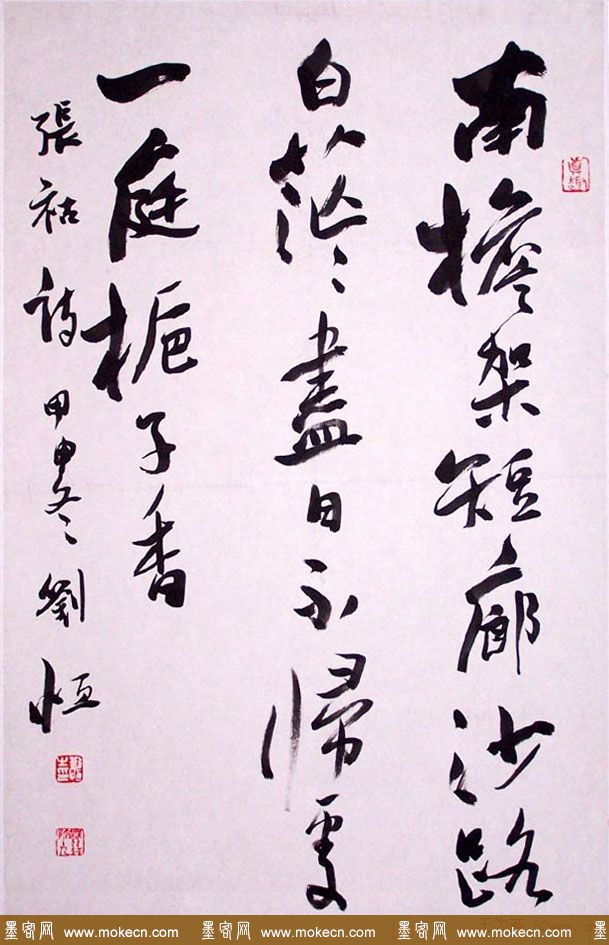 南檐架短廊沙路
白茫〻盡日不歸處
一庭栀子香
張祜詩甲申冬劉恒
墨客网 www.mokecn.com 墨客网 www.mokecn.com 墨客网 www.mokecn.com